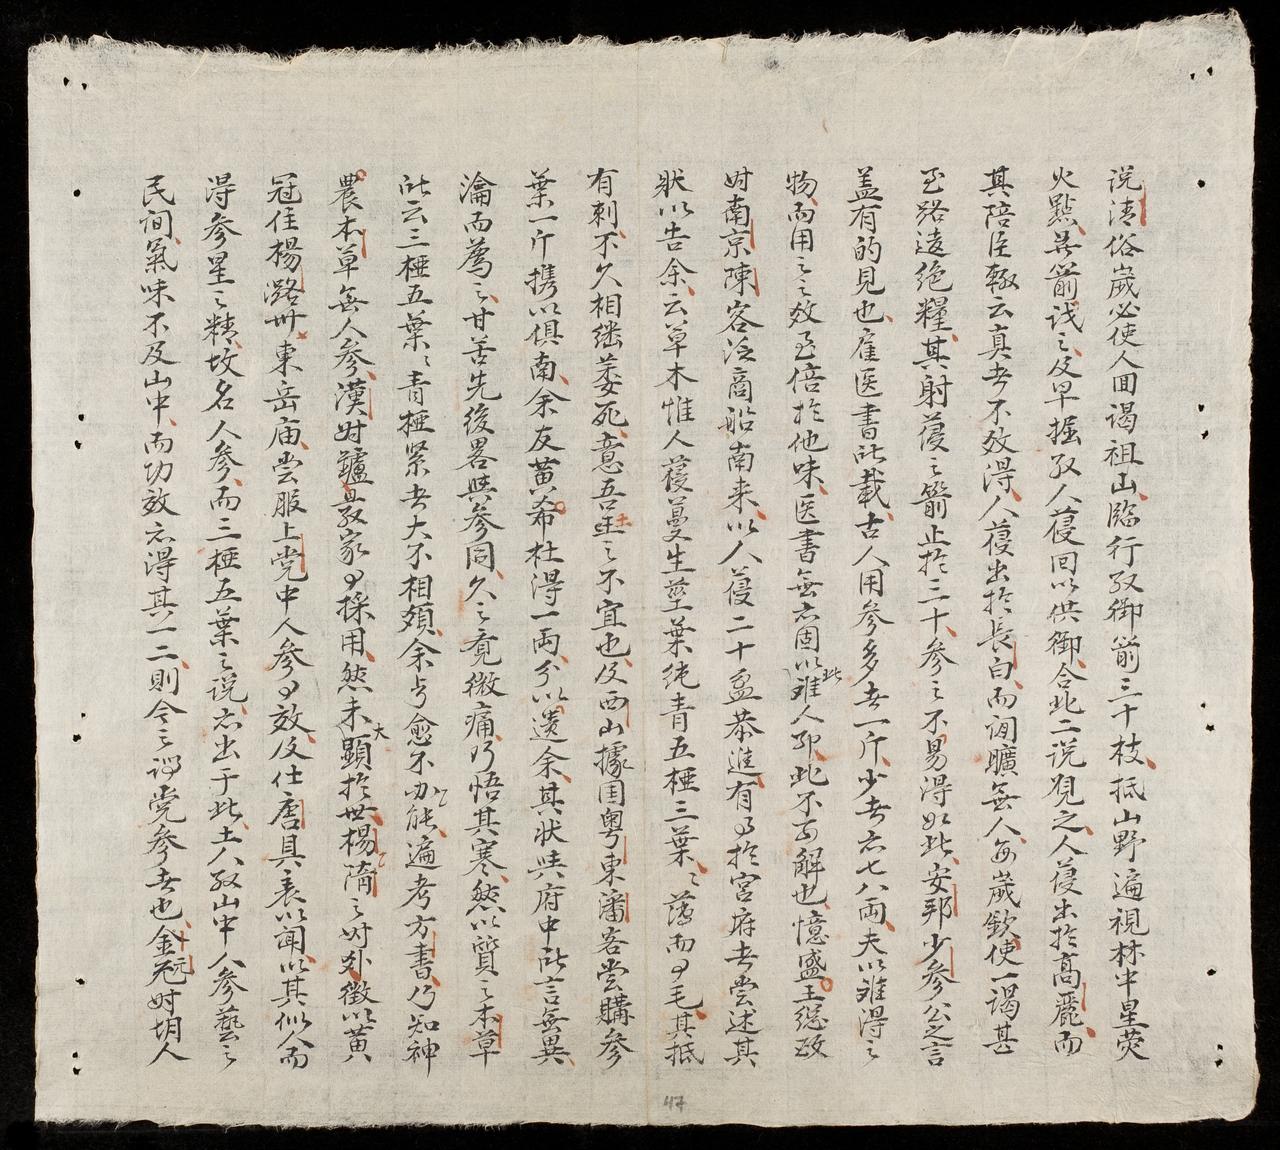 说清俗歲必使人回谒祖山臨行致御箭三十枝抵山野遍視林中星荧
火點共箭識之及早掘取人葠回以供御合此二说覌之人葠出於高麗而
其陪臣輒云真者不效得人葠出於長白而词曠無人每歲欽使一谒甚
至路遠絶糧其射葠之箭止於三十参之不易得如此安郢少参公之言
盖有的見也雇医書所載古人用参多者一斤少者亦七八兩夫以難得之
物而用之之效至倍於他味医書無亦固以此難人耶此不可解也憶盛王總政
时南京陳客泛商船南来以人葠二十盆恭進有司於宮府者尝述其
狀以告余云草木惟人葠蔓生莖葉純青五椏三葉葉薄而有毛其抵
有刺不久相继萎死意吾土之不宜也及西山據国粤東潘客尝購参
葉一斤携以俱南余友黄希杜得一兩分以遗余其狀與府中所言無異
瀹而薦之甘苦先後畧與参同久之竟微痛乃悟其寒然以質之本草
所云三椏五葉葉青椏紧者大不相類余占愈不功能遍考方書乃知神
農本草無人参漢时驢县敎家有採用然未大顯於世楊隋之时外徵以黄
冠住楊潞州東岳庙尝服上党中人参有效及仕唐具表以闻以其似人而
得参星之精故名人参而三椏五葉之说亦出于此土人取山中人参藝之
民间氣味不及山中而功效亦得其一二則今之謂党参者也金元时胡人
47